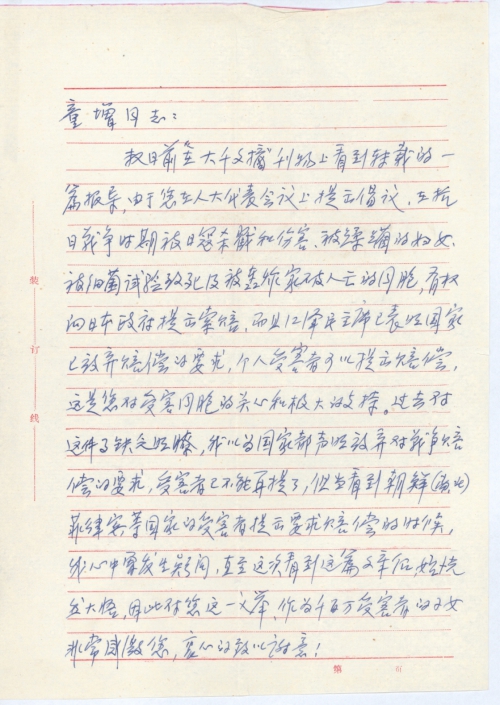 童增同志：
数日前在大千文摘刊物上看到转载的一
篇报导，由于您在人大代表会议上提出倡议，在抗
日战争时期被日寇杀戮和伤害、被蹂躏的妇女、
被细菌试验致死及被轰炸家破人亡的同胞，有权
向日本政府提出索赔，而且江泽民主席已表明国家
已放弃赔偿的要求，个人受害者可以提出赔偿，
这是您对受害同胞的关心和极大的支持。过去对
这件事缺乏明瞭，我以为国家都声明放弃对战争赔
偿的要求，受害者已不能再提了，但当看到朝鲜（南北）
菲律宾等国家的受害者提出要求赔偿的时候，
我心中要发生疑问，直至这次看到这篇文章后始恍
然大悟，因此对您这一文章，作为千百万受害者的子女
非常感激您，衷心的致以谢意！
装
订
线
第